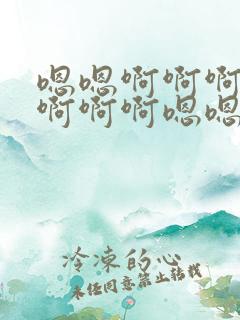 嗯嗯啊啊啊
啊啊啊嗯嗯
冷凍的心
未經同意禁止轉載